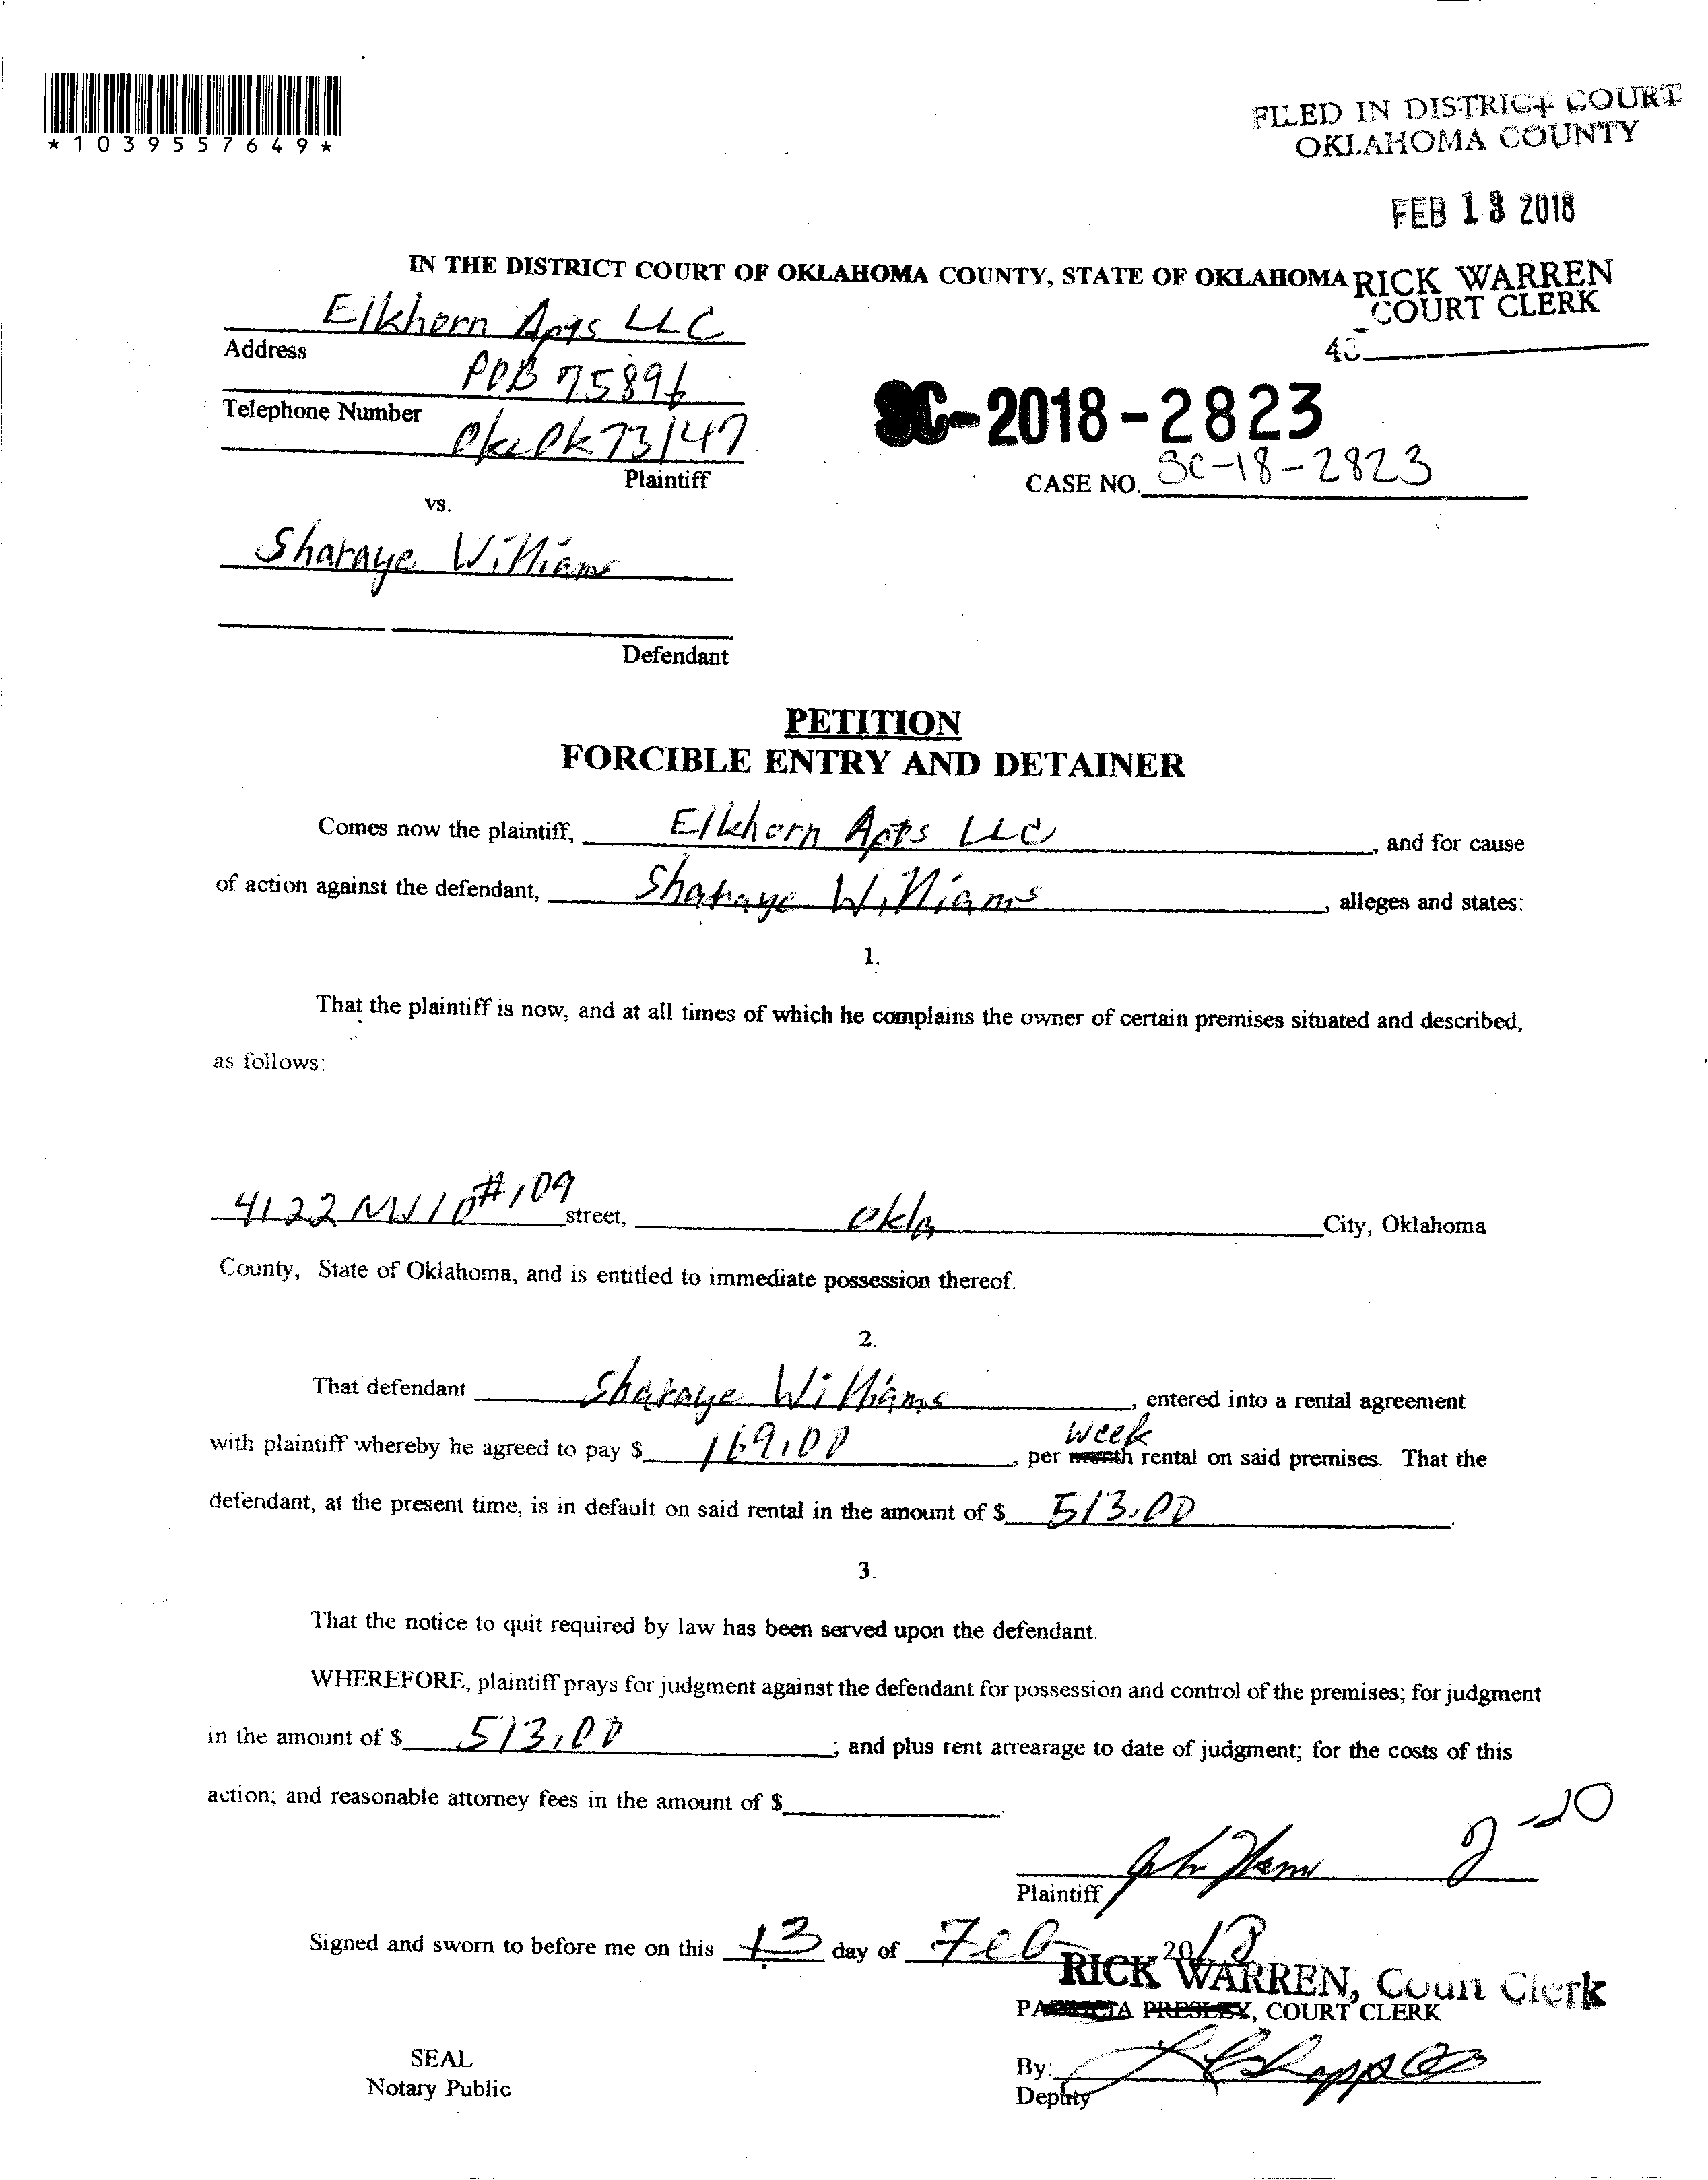 *1039557649*
FILED IN DISTRICT COURT
OKLAHOMA COUNTY
FEB 13 2018
IN THE DISTRICT COURT OF OKLAHOMA COUNTY, STATE OF OKLAHOMA
RICK WARREN
COURT CLERK
Elkhorn Apts LLC
Address
POB 75896
Telephone Number
Okc Ok 73147
Plaintiff
SC-2018-2823
CASE NO. SC-18-2823
vs.
Sharaye Williams
Defendant
PETITION
FORCIBLE ENTRY AND DETAINER
Comes now the plaintiff, Elkhorn Apts LLC, and for cause
of action against the defendant, Sharaye Williams, alleges and states:
1.
That the plaintiff is now, and at all times of which he complains the owner of certain premises situated and described,
as follows:
4122 NW 10 #109 street, Okla City, Oklahoma
County, State of Oklahoma, and is entitled to immediate possession thereof.
2.
That defendant Sharaye Williams, entered into a rental agreement
with plaintiff whereby he agreed to pay $ 169.00, per month week rental on said premises. That the
defendant, at the present time, is in default on said rental in the amount of $ 513.00.
3.
That the notice to quit required by law has been served upon the defendant.
WHEREFORE, plaintiff prays for judgment against the defendant for possession and control of the premises; for judgment
in the amount of $ 513.00; and plus rent arrearage to date of judgment; for the costs of this
action; and reasonable attorney fees in the amount of $.
2-20
Plaintiff
Signed and sworn to before me on this 13 day of Feb 2018
RICK WARREN, Court Clerk
PATRICIA PRESLEY, COURT CLERK
SEAL
Notary Public
By:
Deputy